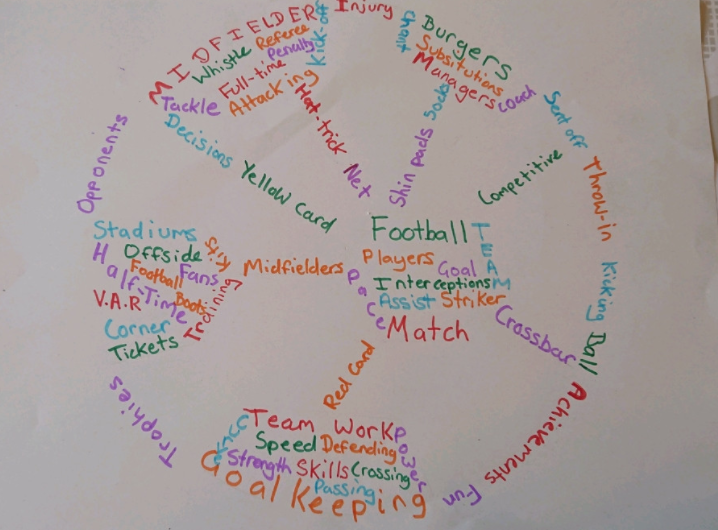 MIDFIELDER
Injury
Kick-off
Referee
Whistle
Penalty
Full-time
Tackle
Attacking
Decisions
Hat-trick
Net
Yellow card
Chant
Burgers
Substitutions
Managers
coach
Socks
Shin pads
Sent off
Competitive
Throw-in
Kicking
Ball
Opponents
Stadiums
Offside
Kits
Half-Time
Fans
Football
Boots
V.A.R
Training
Corner
Tickets
Midfielders
Football
TEAM
Players
Goal
Interceptions
Pace
Assist Striker
Match
Crossbar
Red card
Achievements
Fun
Trophies
Team Work
Power
Speed Defending
Strength Skills Crossing
Passing
Goal Keeping